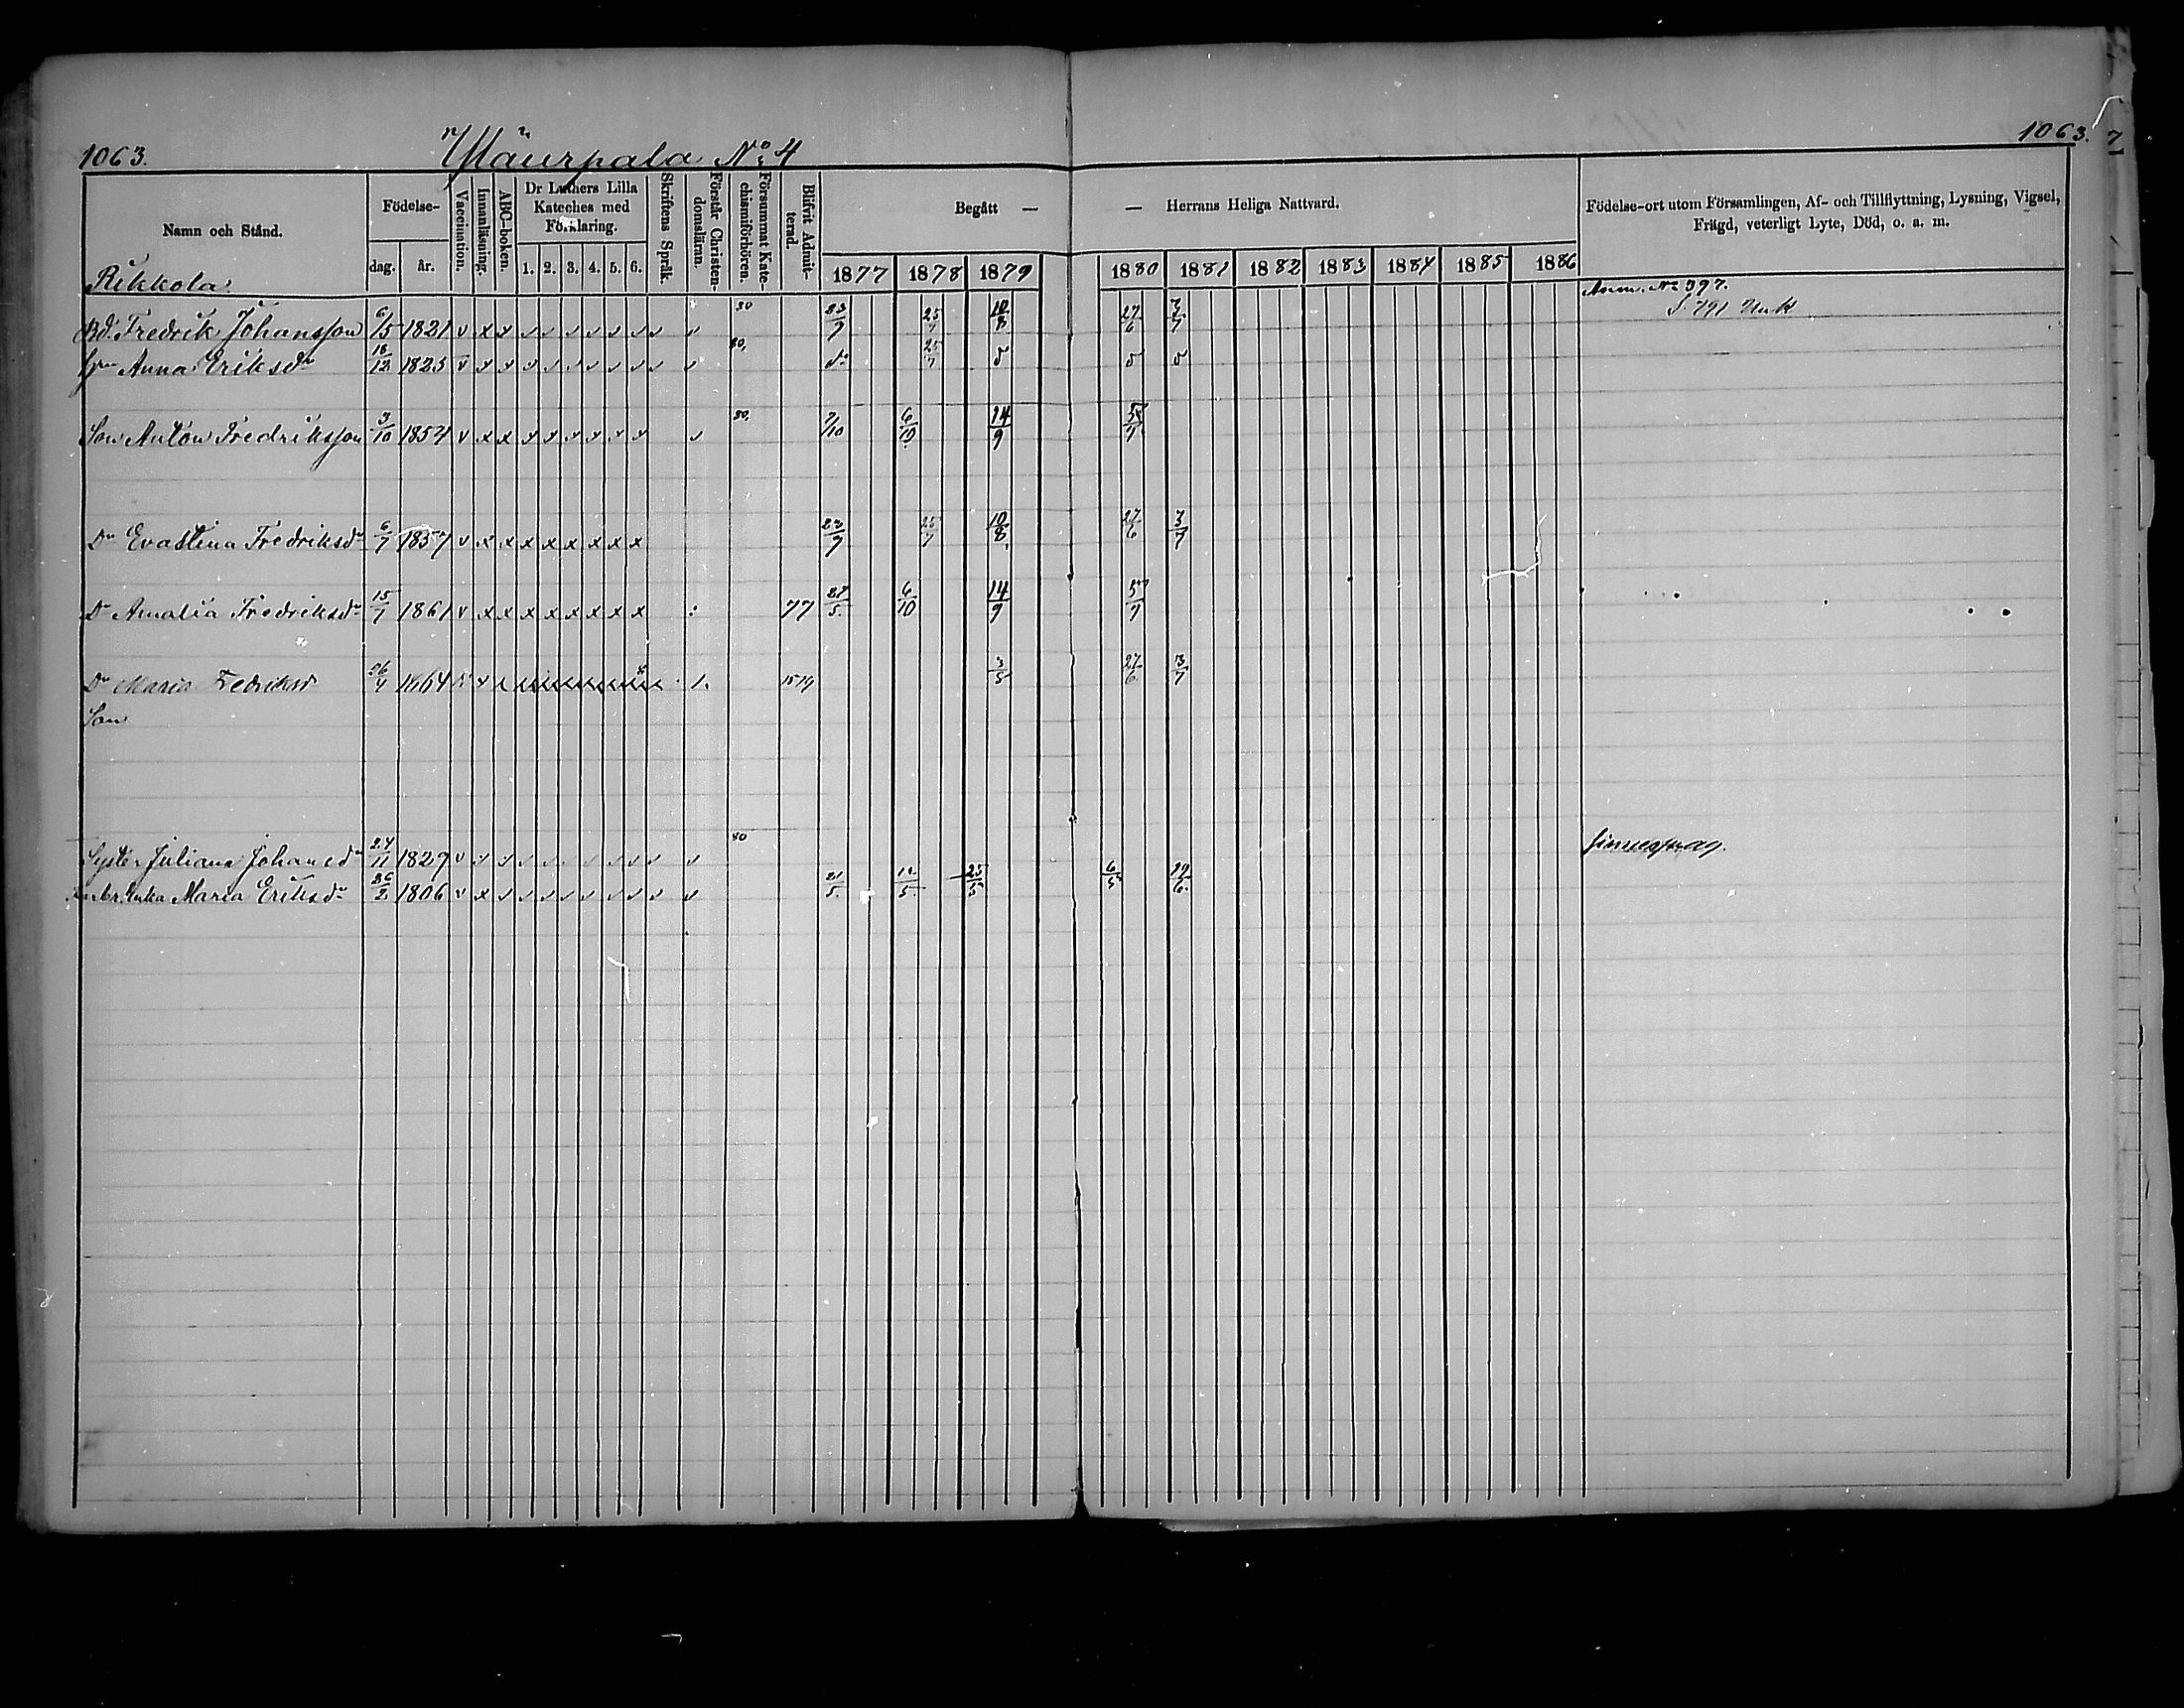 1063. Yläurpala No 4 1063.
Namn och Stånd. Födelse- dag. år. Vaccination. Innanläsning. ABC-boken. Dr Luthers Lilla Kateches med Förklaring. 1. 2. 3. 4. 5. 6. Skriftens Språk. Förstår Christendomsläran. Försummat Katechismiförhören. Blifvit Admitterad. Begått — — Herrans Heliga Nattvard. Födelse-ort utom Församlingen, Af- och Tillflyttning, Lysning, Vigsel, Frägd, veterligt Lyte, Död, o. a. m.
1877 1878 1879 1880 1881 1882 1883 1884 1885 1886
Rikkola. Anm. No 397.
Bd. Fredrik Johansson 6/5 1821 v x x v v v v v v v v 80 23/9 25/7 10/8 27/6 3/7 S. 791
Anna Eriksdr 18/12 1825 v x x v v v v v v v v 80, do 25/7 d d d
Son Anton Fredriksson 3/10 1854 v x x x x x x x x v 80, 7/10 6/10 14/9 5/7
Dr Evastina Fredriksdr 6/7 1857 v x x x x x x x x 23/9 25/7 10/8 27/6 3/7
Dr Amalia Fredriksdr 15/7 1861 v x x x x x x x x 77 27/5. 6/10 14/9 5/7
Dr Maria Fredriksd 26/4 1864 1879 3/5 27/6 3/7
Son
Syster Juliana Johansdr 24/11 1829 v v v v v v v v v v v 80
Enka Maria Eriksdr 26/2 1806 v x v v v v v v v v v 21/5. 12/5. 25/5 6/5 19/6.